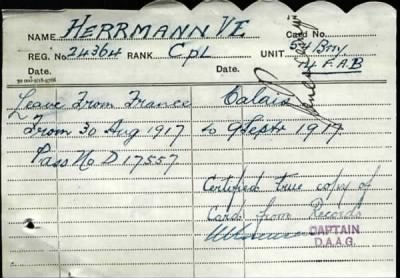 NAME HERRMANN V E Card No.
REG. No. 24364 RANK Cpl UNIT 54 Bty
Date. Date. 14 F.A.B
Leave From France Calais
From 30 Aug 1917 to 9 Septr 1917
Pass No D 17557
Certified true copy of
Card from Records
CAPTAIN
D.A.A.G.